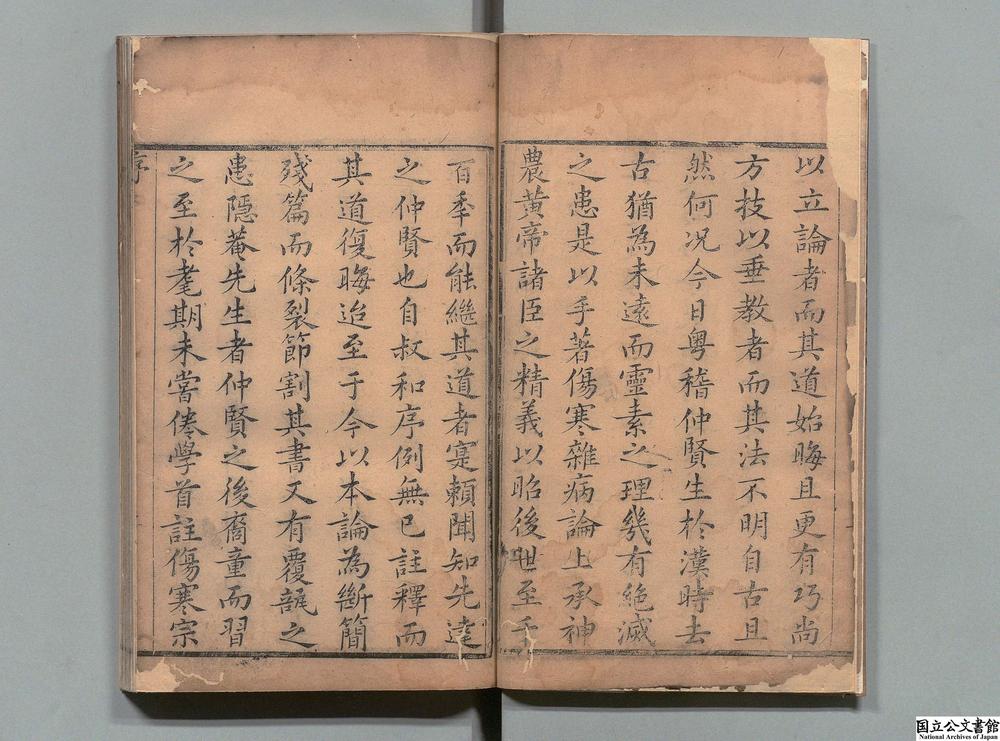 以立論者而其道始晦且更有巧尚
方技以垂教者而其法不明自古且
然何况今日粤稽仲賢生於漢時去
古猶為未遠而靈素之理幾有絶滅
之患是以手著傷寒雜病論上承神
農黃帝諸臣之精義以昭後世至千
百季而能繼其道者寔賴聞知先達
之仲賢也自叔和序例無已註釋而
其道復晦迨至于今以本論為斷簡
殘篇而條裂節割其書又有覆瓿之
患隱菴先生者仲賢之後裔童而習
之至於耄期未嘗倦學首註傷寒宗
序
国立公文書館
National Archives of Japan